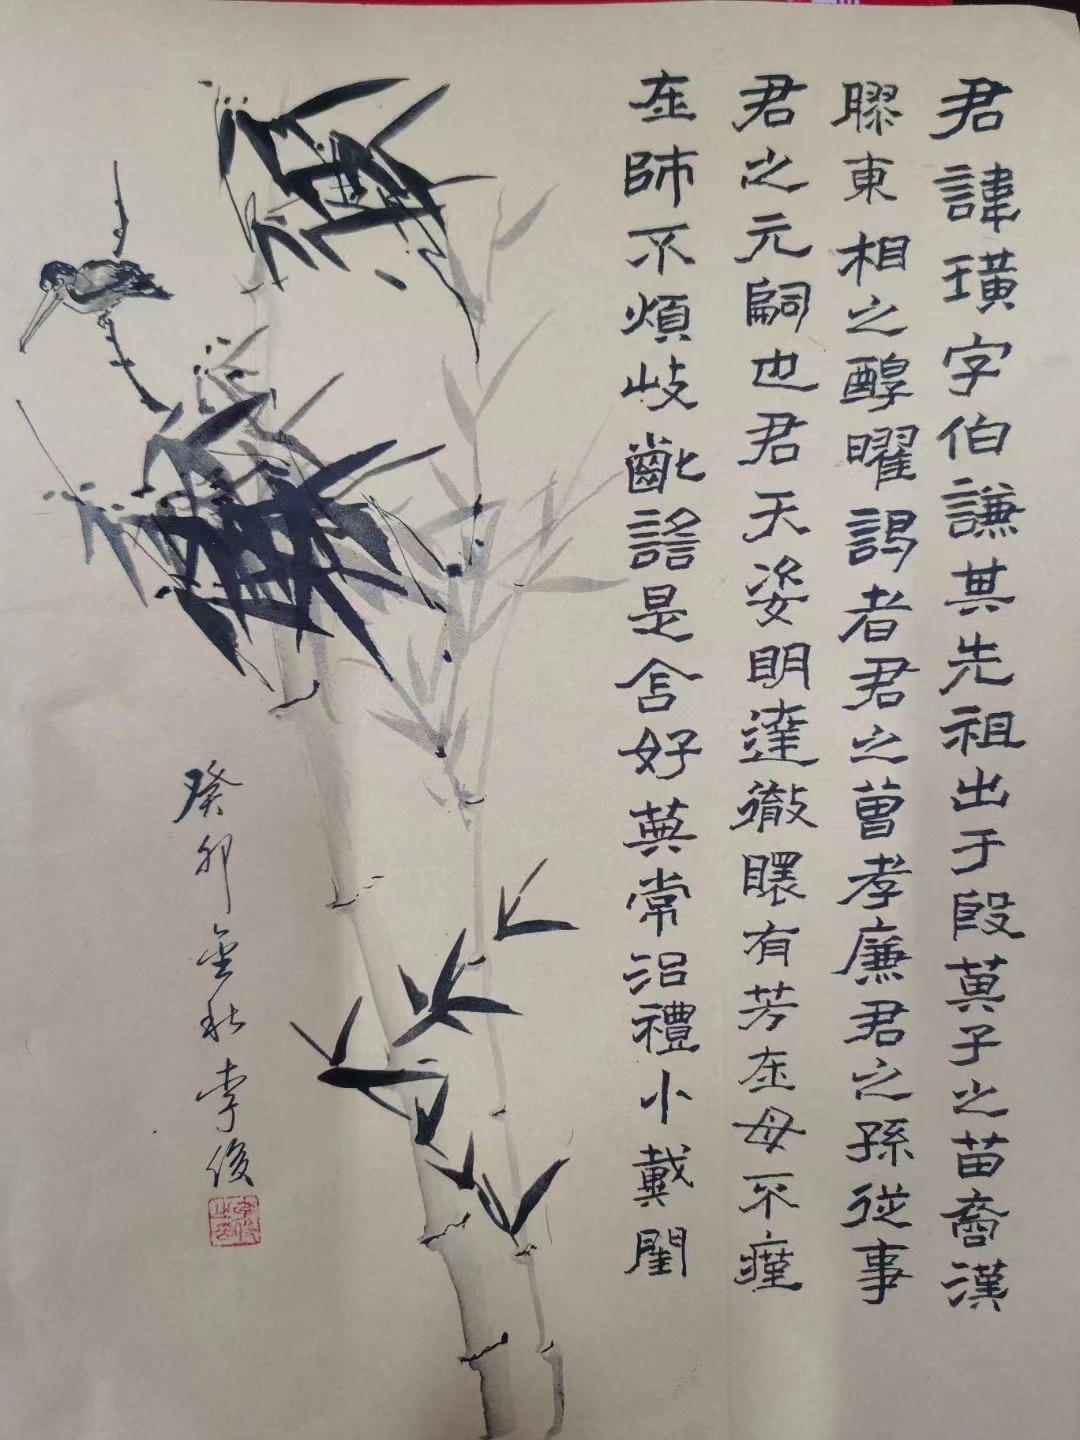 君諱璜字伯謙其先祖出于殷萁子之苗裔漢
膠東相之醇曜謁者君之曾孝廉君之孫從事
君之元嗣也君天姿明達徹有芳在母不瘽
在師不煩岐齔謠是含好常沿禮小戴閨
癸卯金秋李俊